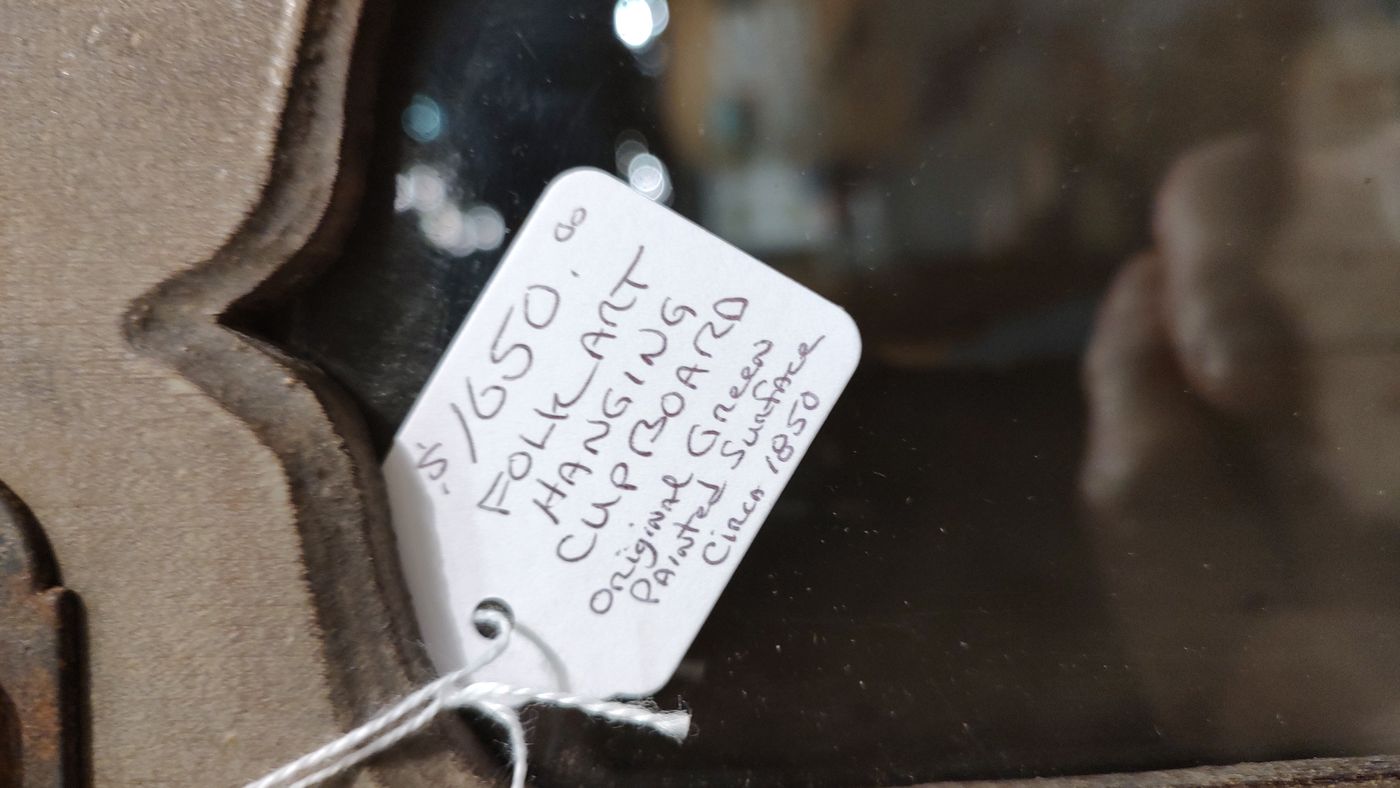 $1650.00
FOLK ART
HANGING
CUPBOARD
ORIGINAL GREEN
PAINTED SURFACE
CIRCA 1850